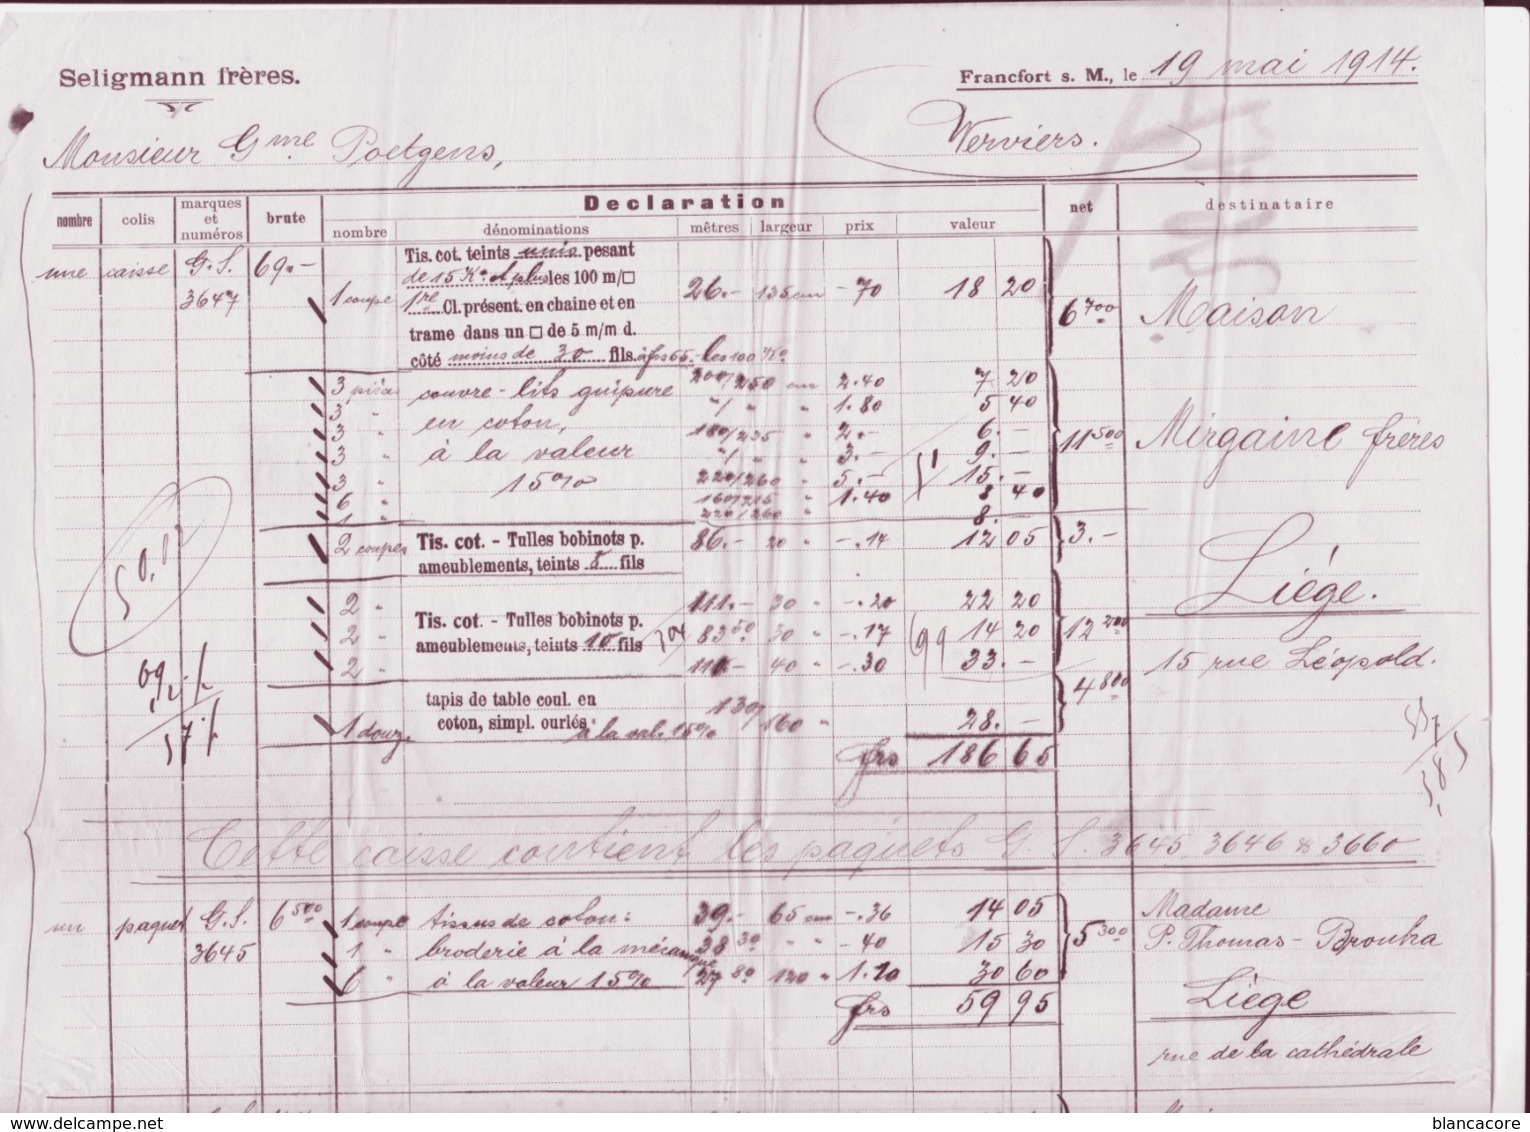 Seligmann frères.
Francfort s. M., le 19 mai 1914.
Monsieur Gme Poetgens,
Verviers.
nombre colis marques et numéros brute Declaration net destinataire
nombre dénominations mètres largeur prix valeur
une caisse G. S. 3647 69.-
Tis. cot. teints unis pesant
de 15 Ko et plus les 100 m/□
1 coupe 1re Cl. présent. en chaine et en 26.- 135 cm -70 18 20 6 700 Maison
trame dans un □ de 5 m/m d.
côté moins de 30 fils. à frs 55.- les 100 Ko
3 pièces couvre-lits guipure 200/250 cm 2.40 7 20
3 " en coton, "/" " 1.80 5 40
3 " 180/235 " 2.- 6. -
3 " à la valeur "/" " 3.- 9. - 11 500 Mirgaine frères
3 " 15% 220/260 " 5.- 15. -
6 " 160/215 " 1.40 8 40
1 " 220/260 " 8. -
2 coupes Tis. cot. - Tulles bobinots p. 86.- 20 " -.14 12 05 3.-
ameublements, teints 5 fils
Liége.
2 " 111.- 30 " -.20 22 20
2 " Tis. cot. - Tulles bobinots p. 83 50 30 " -.17 14 20 12 200
ameublements, teints 10 fils
2 " 110- 40 " -.30 33. -
15 rue Léopold.
tapis de table coul. en 4 800
1 douz. coton, simpl. ourlés 130/160 " 28. -
à la val. 15%
frs 186 65
Cette caisse contient les paquets G. S. 3645, 3646 & 3660
un paquet G. S. 3645 6 500 1 coupe tissus de coton: 39.- 65 cm -.36 14 05 Madame
1 " broderie à la mécanique 38 30 " " -40 15 30 5 300 P. Thomas-Brouha
6 " à la valeur 15% 27 80 120 " 1.10 30 60
frs 59 95
Liège
rue de la cathédrale
blancacore